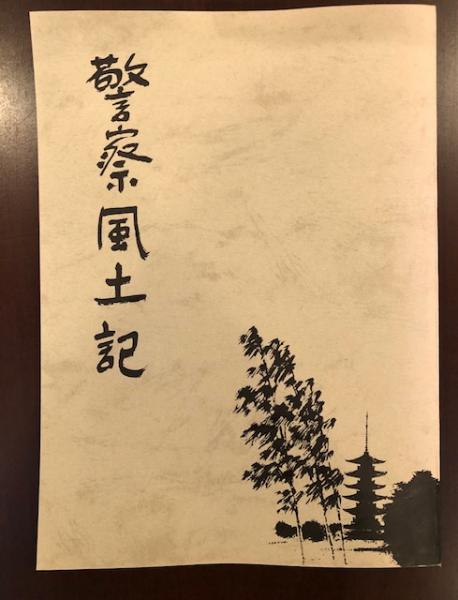 警察風土記